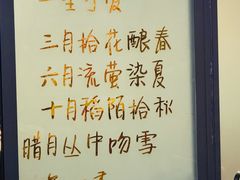 三月拾花酿春
六月流萤染夏
十月稻陌拾秋
腊月丛中吻雪